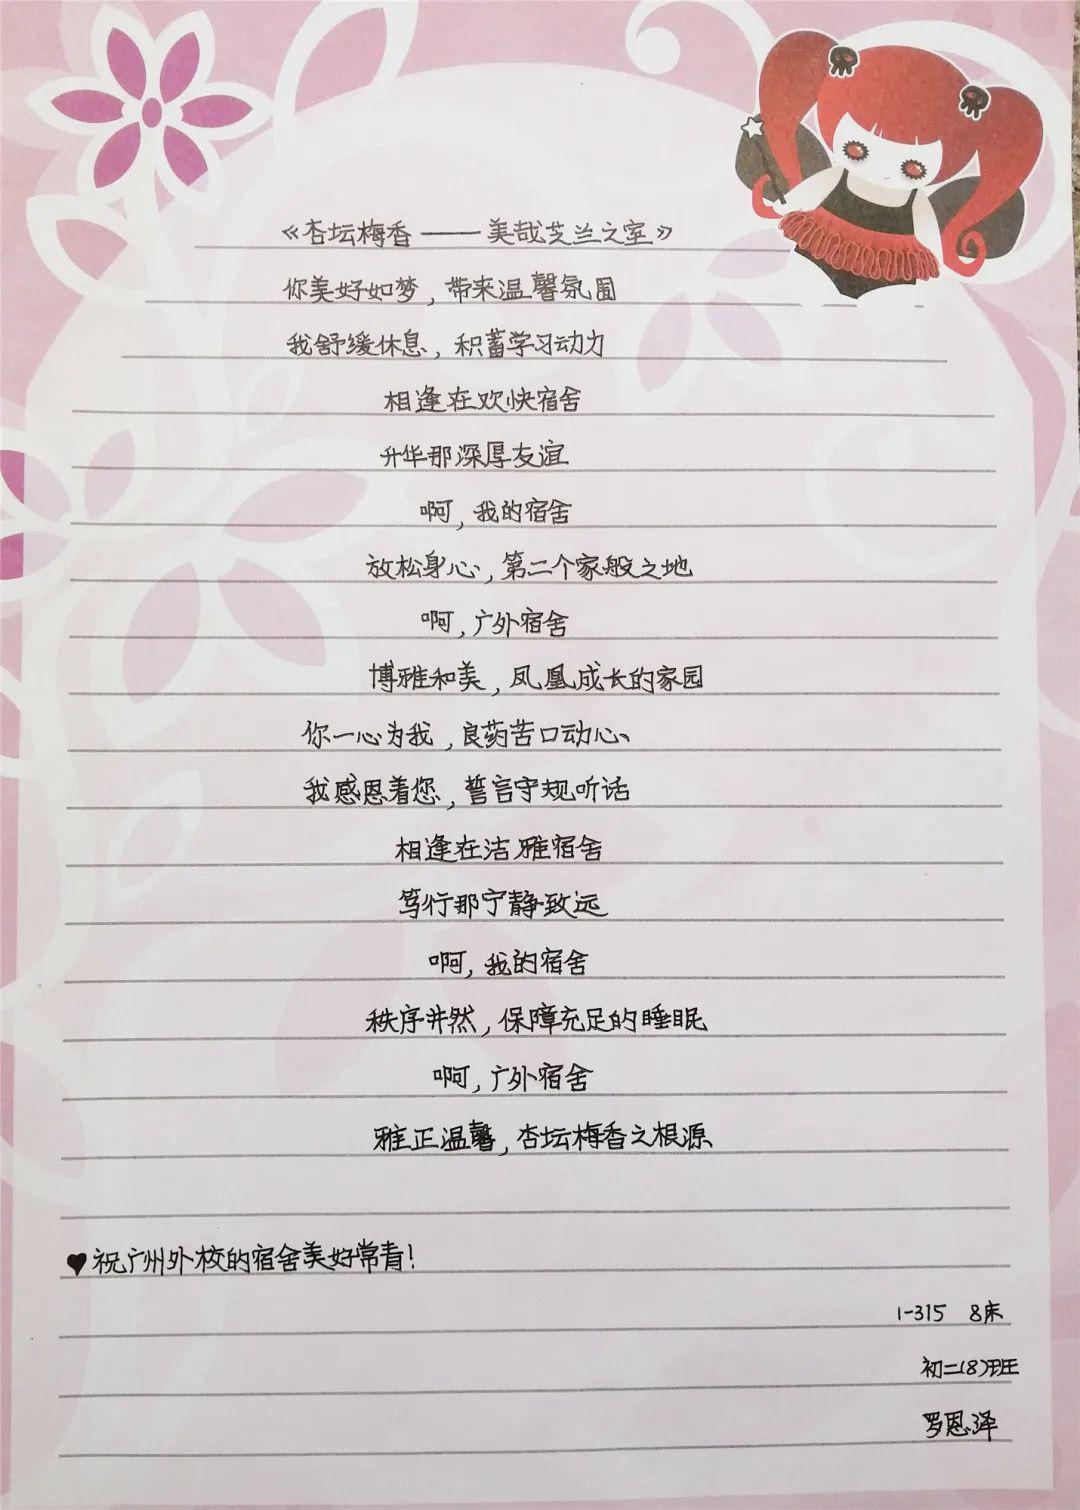 《杏坛梅香——美哉芝兰之室》
你美好如梦，带来温馨氛围
我舒缓休息，积蓄学习动力
相逢在欢快宿舍
升华那深厚友谊
啊，我的宿舍
放松身心，第二个家般之地
啊，广外宿舍
博雅和美，凤凰成长的家园
你一心为我，良药苦口动心
我感恩着您，誓言守规听话
相逢在洁雅宿舍
笃行那宁静致远
啊，我的宿舍
秩序井然，保障充足的睡眠
啊，广外宿舍
雅正温馨，杏坛梅香之根源
♥祝广州外校的宿舍美好常青！
1-315 8床
初二(8)班
罗恩泽